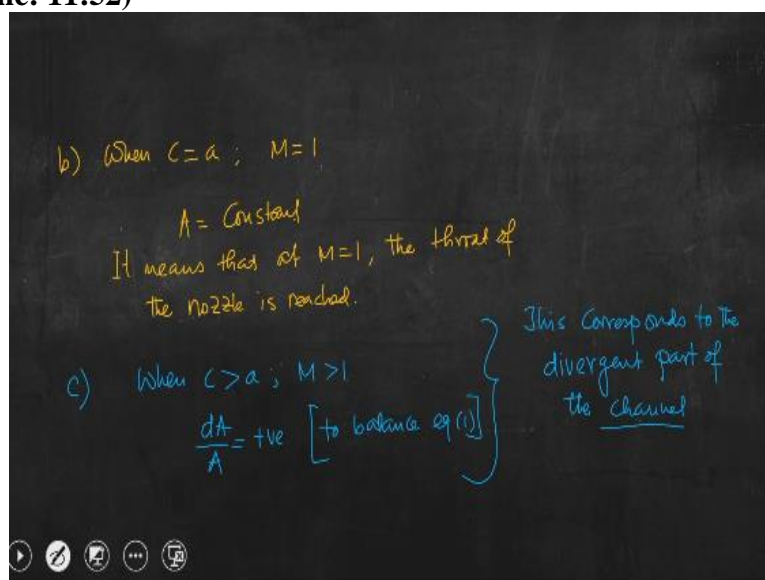 b) When C = a ; M = 1
A = Constant
It means that at M=1, the throat of
the nozzle is reached.
c) When C > a ; M > 1
dA/A = +ve [to balance eq (1)]
This Corresponds to the
divergent part of
the channel